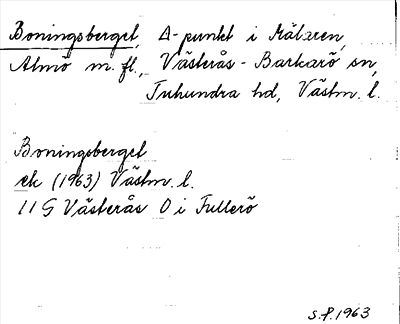 Boningsberget, Δ-punkt i Mälaren,
Almö m.fl., Västerås-Barkarö sn,
Tuhundra hd, Västm. l.
Boningsberget
ek (1963) Västm. l.
11 G Västerås O i Fullerö
S.P. 1963